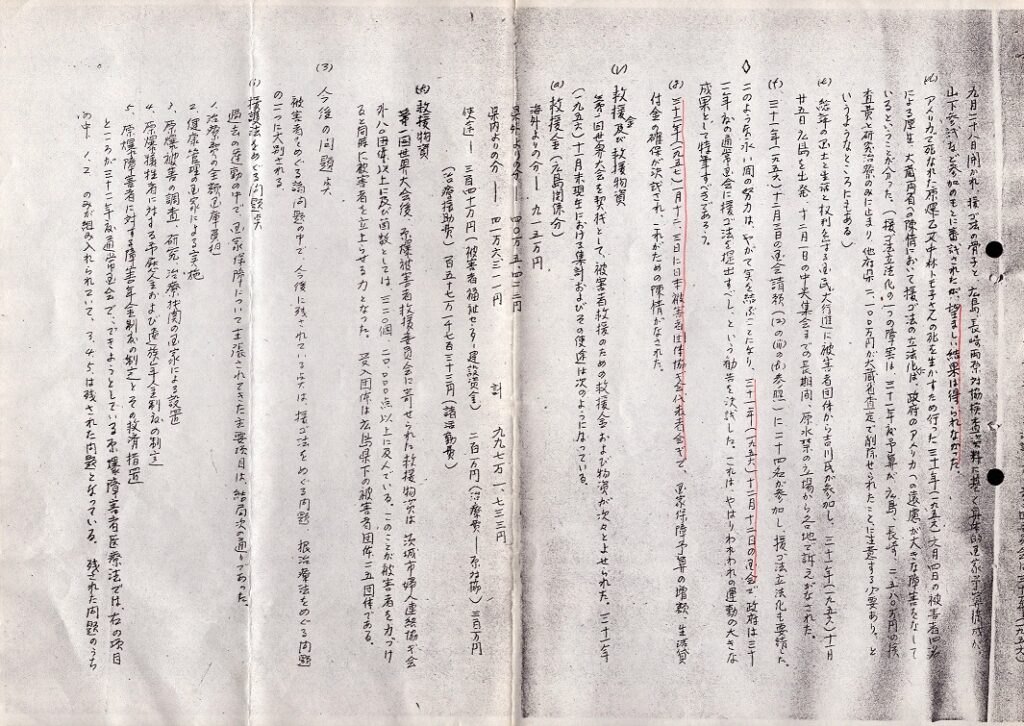 九月二十八日開かれ、援ゴ法の骨子と広島、長崎両原対協検査資料に基く具体的国家予算構成が
山下参議など参加のもとに審議されたが、望ましい結果は得られなかった。
アメリカで死なれた原爆乙女中林トモ子さんの死を生かすため行った三十一年(一九五六)
による厚生、大蔵両省への陳情において援ゴ法の立法化は、政府のアメリカへの遠慮が大きな障害をなして
いるということが分った。(援ゴ法立法化の一つの障害は、三十一年度予算が、広島、長崎、二五八〇万円の検
査費と研究治療のみに止まり、他府県二、一〇〇万円が大蔵省査定で削除せられたことに注意する必要あり、と
いうようなところにもある)
(e) 給年の国土と生活と权利を守る国民大行進に被害者団体から吉川氏が参加し、三十一年(一九五六)十月
廿五日広島を出発、十二月一日の中央集会までの長期間、原水禁の立場から各地で訴えがなされた。
(f) 三十一年(一九五六)十二月三日の国会請願((2)の(iii)の(b)参照)に二十四名が参加し援ゴ法立法化も要請した。
◇ このような永い間の努力は、やがて実を結ぶことになり、三十一年(一九五六)十二月十二日の国会で政府は三十
二年度の通常国会に援ゴ法を提出すべし、という勧告を決議した。これはやはりわれわれの運動の大きな
成果として特筆すべきであろう。
(g) 三十二年(一九五七)一月十二、三日に日本被害者団体協ギ会代表者会ギで、国家保障予算の増額、生活資
付金の確保が決議され、これがための陳情がなされた。
(v) 救援金及び救援物資
第一回世界大会を契機として、被害者救援のための救援金および物資が次々とよせられた。三十一年
(一九五六)十一月末現在における集計およびその使途は次のようになっている。
(a) 救援金(広島関係分)
海外よりの分— 九一五万円
県外よりの分— 四〇万五、四二二円
県内よりの分— 四一万六三一一円 計 九九七万一、七三三円
使途— 三百四十万円(被害者福祉センター建設資金) 二百一万円(治療費—原対協) 三百万円
(治療援助費) 百五十七万一千七百三十三円(諸活動費)
(b) 救援物資
第一回世界大会後、原爆被害者救援委員会に寄せられた救援物資は茨城市婦人連絡協ギ会
外八〇団体以上に及び個数としては、三二〇個、二〇〇〇〇点以上に及んでいる。このことが被害者を力づけ
ると同時に被害者を立上らせる力となった。受入団体は広島県下の被害者団体二五団体である。
(3) 今後の問題点
被害者をめぐる諸問題の中で、今後に残されている点は、援ゴ法をめぐる問題、根治療法をめぐる問題
の二つに大別される。
(i) 援護法をめぐる問題点
過去の運動の中で、国家保障について主張されてきた主要項目は、結局次の通りであった。
1. 治療費の全額国庫負担
2. 健康管理の国家による実施
3. 原爆被害の調査、研究、治療機関の国家による設置
4. 原爆犠牲者に対する弔慰金および遺族年金制度の制定
5. 原爆障害者に対する障害年金制度の制定と、その救済措置
ところが三十二年度通常国会で、できようとしている原爆障害者医療法では、右の項目
の中 1、2のみが組み入れられていて、3、4、5は残された問題となっている。残された問題のうち